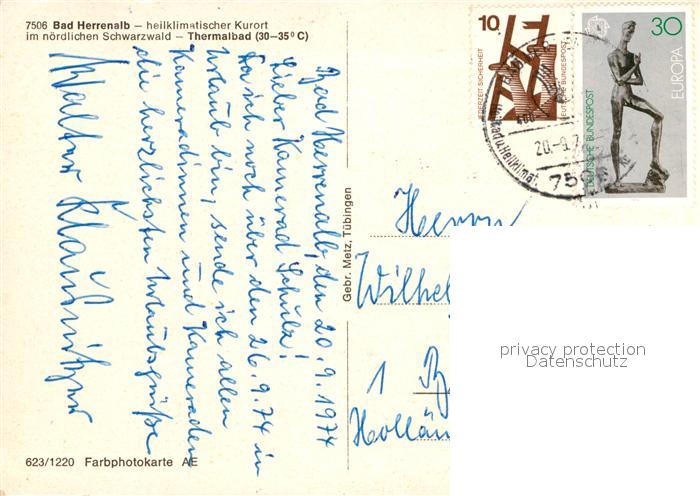 7506 Bad Herrenalb – heilklimatischer Kurort
im nördlichen Schwarzwald – Thermalbad (30–35° C)
Bad Herrenalb, den 20.9.1974
Lieber Kamerad Schulz!
Da ich noch über den 26.9.74 in
Urlaub bin, sende ich allen
Kameradinnen und Kameraden
die herzlichsten Urlaubsgrüße
Walter
Gebr. Metz, Tübingen
10
JEDERZEIT SICHERHEIT
DEUTSCHE BUNDESPOST
30
EUROPA
DEUTSCHE BUNDESPOST
20.-9.7
75
Herrn
Wilhel
1 B
Hollän
privacy protection
Datenschutz
623/1220 Farbphotokarte AE